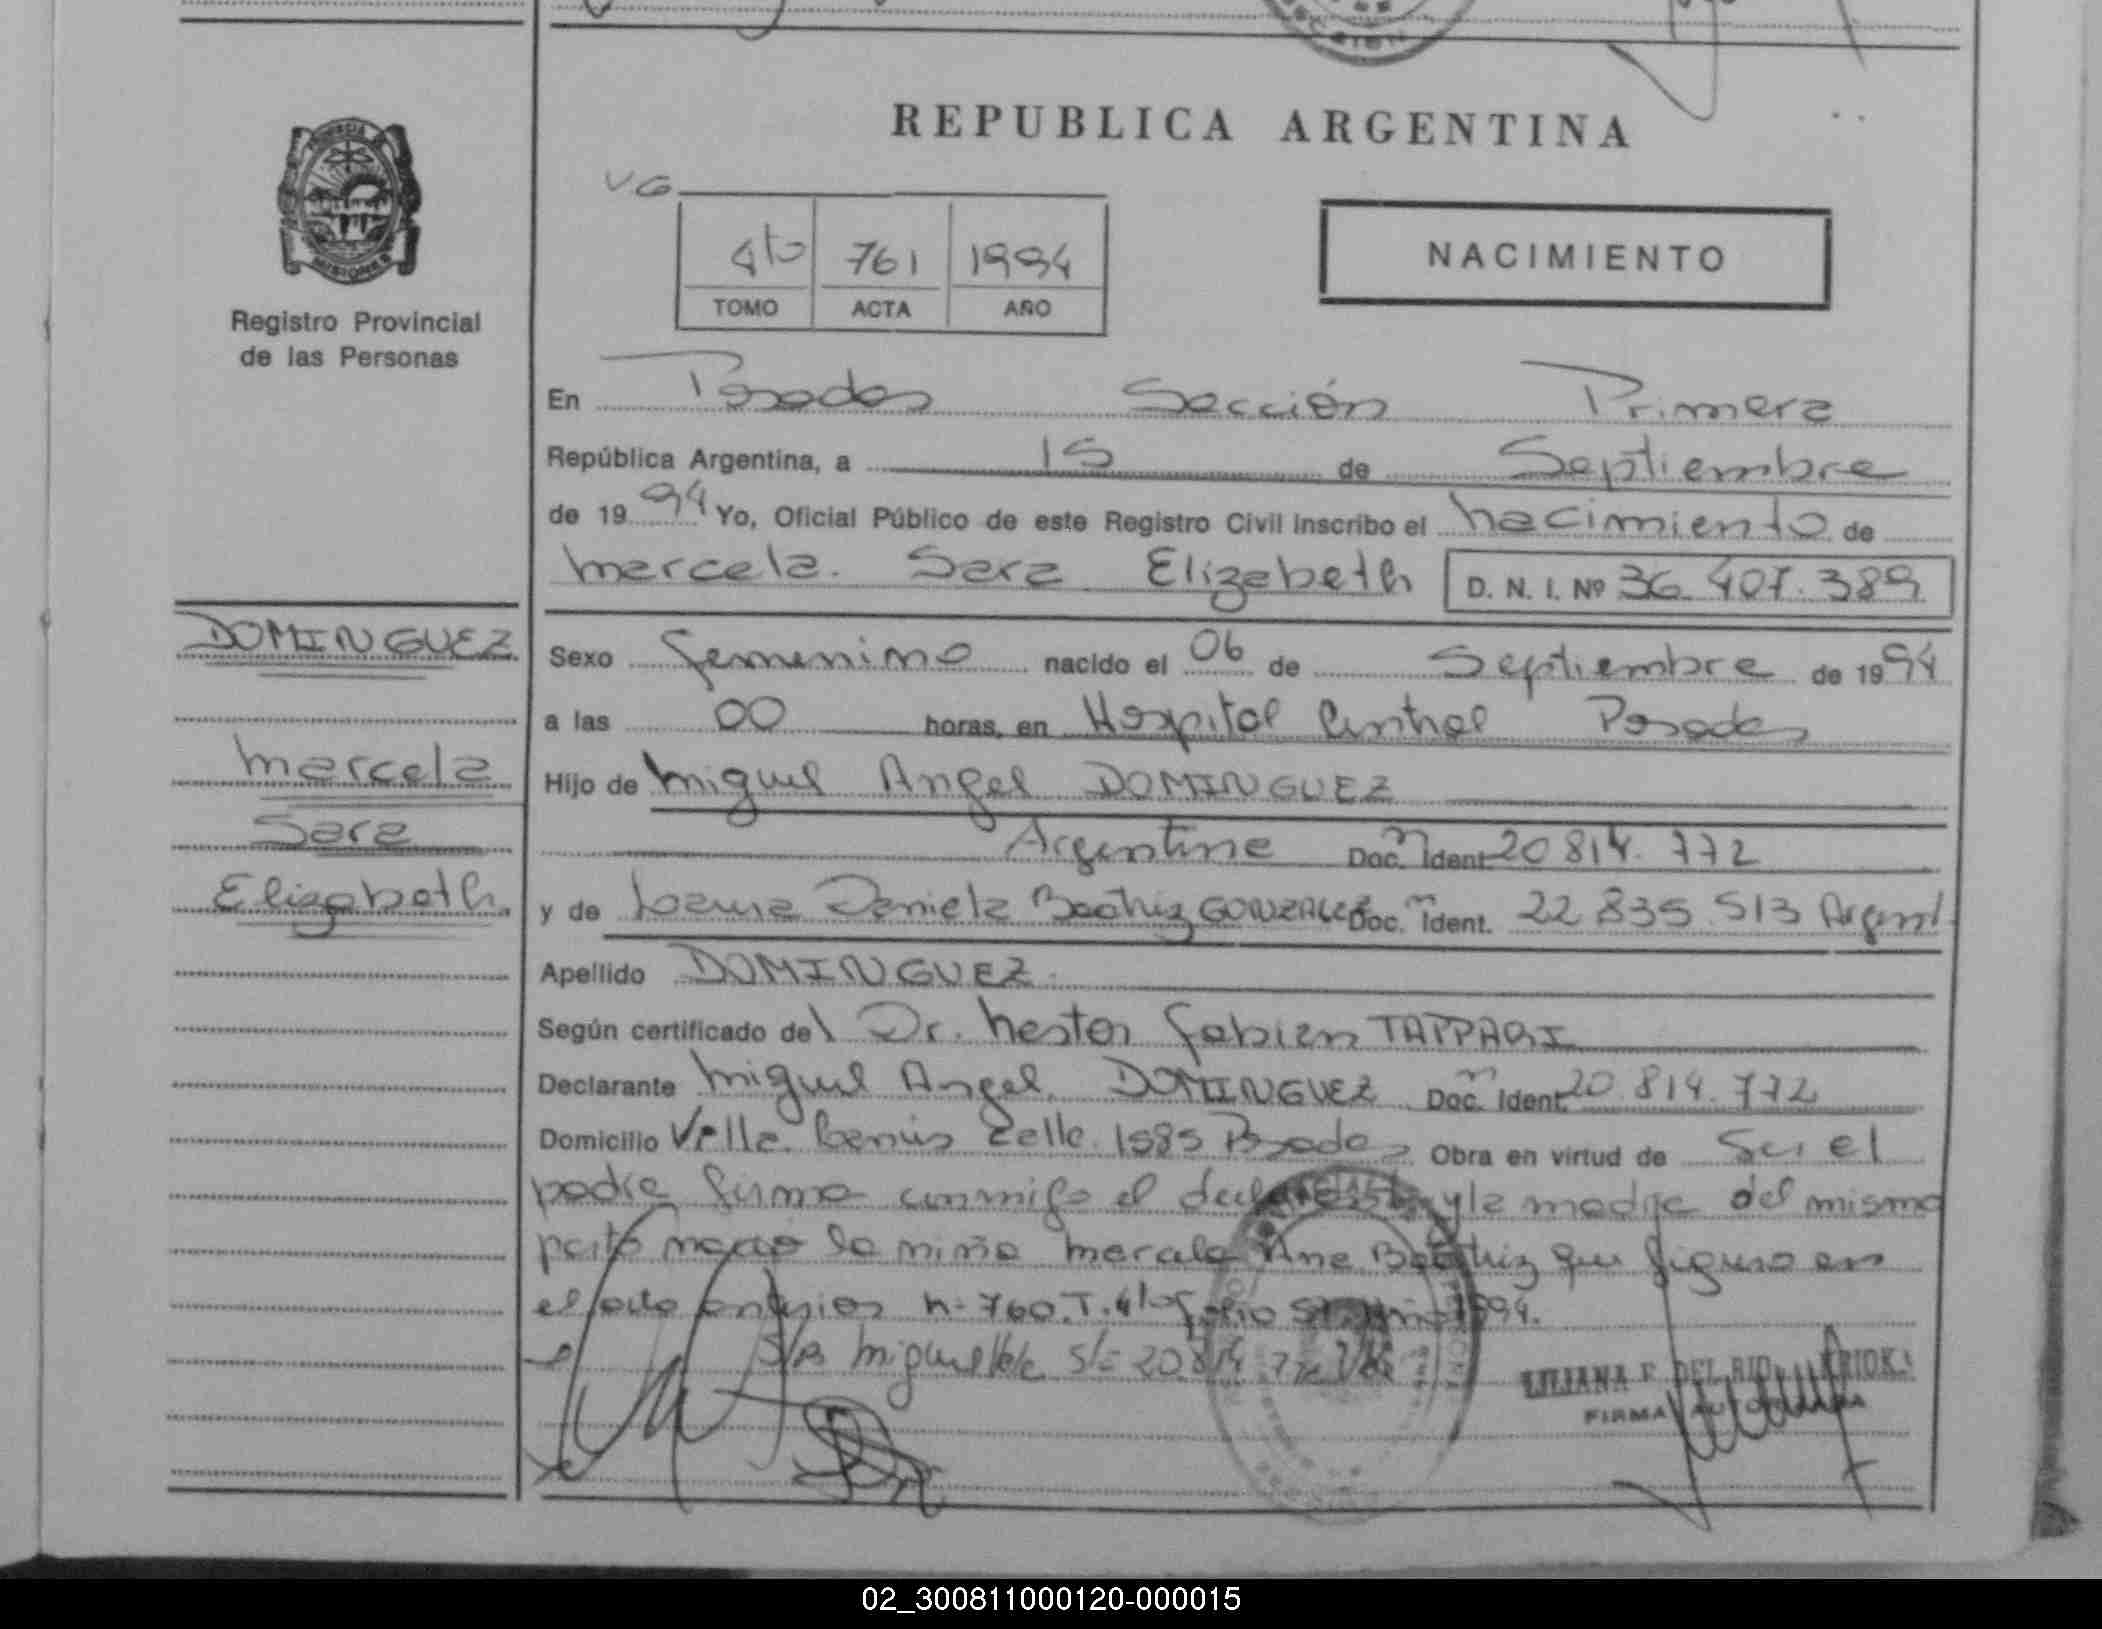 REPUBLICA ARGENTINA
VG
4to 761 1994
TOMO ACTA AÑO
NACIMIENTO
MISIONES
Registro Provincial
de las Personas
En Posadas Sección Primera
República Argentina, a 15 de Septiembre
de 1994 Yo, Oficial Público de este Registro Civil inscribo el nacimiento de
Marcela Sara Elizabeth D. N. I. Nº 36.407.389
DOMINGUEZ
Marcela
Sara
Elizabeth
Sexo femenino nacido el 06 de Septiembre de 1994
a las 00 horas, en Hospital Central Posadas
Hijo de Miguel Angel DOMINGUEZ
Argentino Doc. Ident. 20 814. 772
y de Daniela Beatriz GONZALEZ Doc. Ident. 22 835 513 Argent
Apellido DOMINGUEZ
Según certificado del Dr. Nestor Fabian TAPPARI
Declarante Miguel Angel DOMINGUEZ Doc. Ident. 20.814.772
Domicilio 1585 Posadas Obra en virtud de Ser el
padre firma conmigo el declarante y la madre del mismo
parto nacio la niña Ana Beatriz que figura en
el acta anterior n- 760.T.4to folio 1994.
Miguel
LILIANA F. DEL RIO
FIRMA AUTORIZADA
02_300811000120-000015